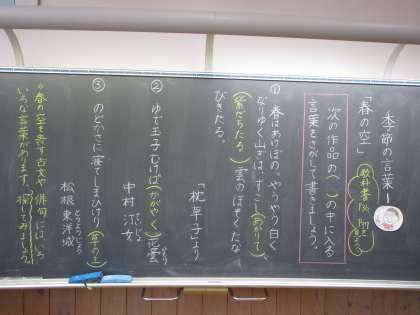 季節の言葉1
「春の空」
教科書P36 P37
次の作品の( )の中に入る
言葉をさがして書きましょう。
① 春はあけぼの。やうやう白く
なりゆく山ぎは、すこし(あかりて)
(紫だちたる)雲のほそくたな
びきたる。
「枕草子」より
② ゆで玉子むけば(かがやく)花曇
中村汀女
③ のどかさに寝てしまひけり(草の上)
松根東洋城
とうようじょう
◎春の空を表す古文や俳句にはいろ
いろな言葉があります。探してみましょう。